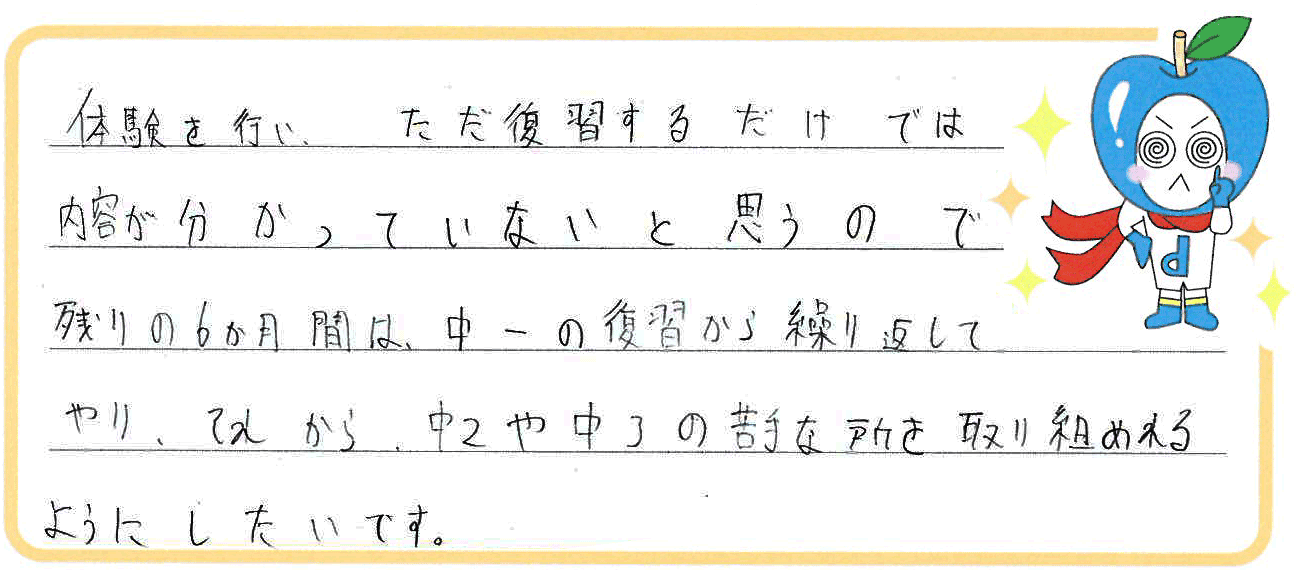 体験を行い、ただ復習するだけでは
内容が分かっていないと思うので
残りの6か月間は、中一の復習から繰り返して
やり、それから、中2や中3の苦手な所を取り組めれる
ようにしたいです。
d